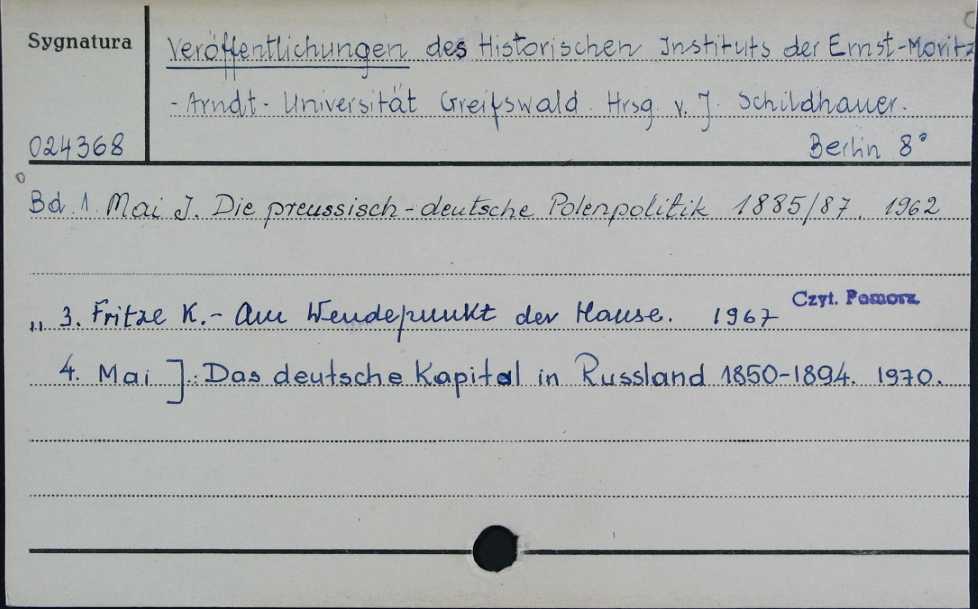 Sygnatura
Veröffentlichungen des Historischen Instituts der Ernst-Moritz
-Arndt-Universität Greifswald. Hrsg. v. J. Schildhauer.
024368
Berlin 8°
Bd. 1. Mai J. Die preussisch-deutsche Polenpolitik 1885/87. 1962
„ 3. Fritze K.- Am Wendepunkt der Hanse. 1967 Czyt. Pomorz.
4. Mai J.: Das deutsche Kapital in Russland 1850-1894. 1970.